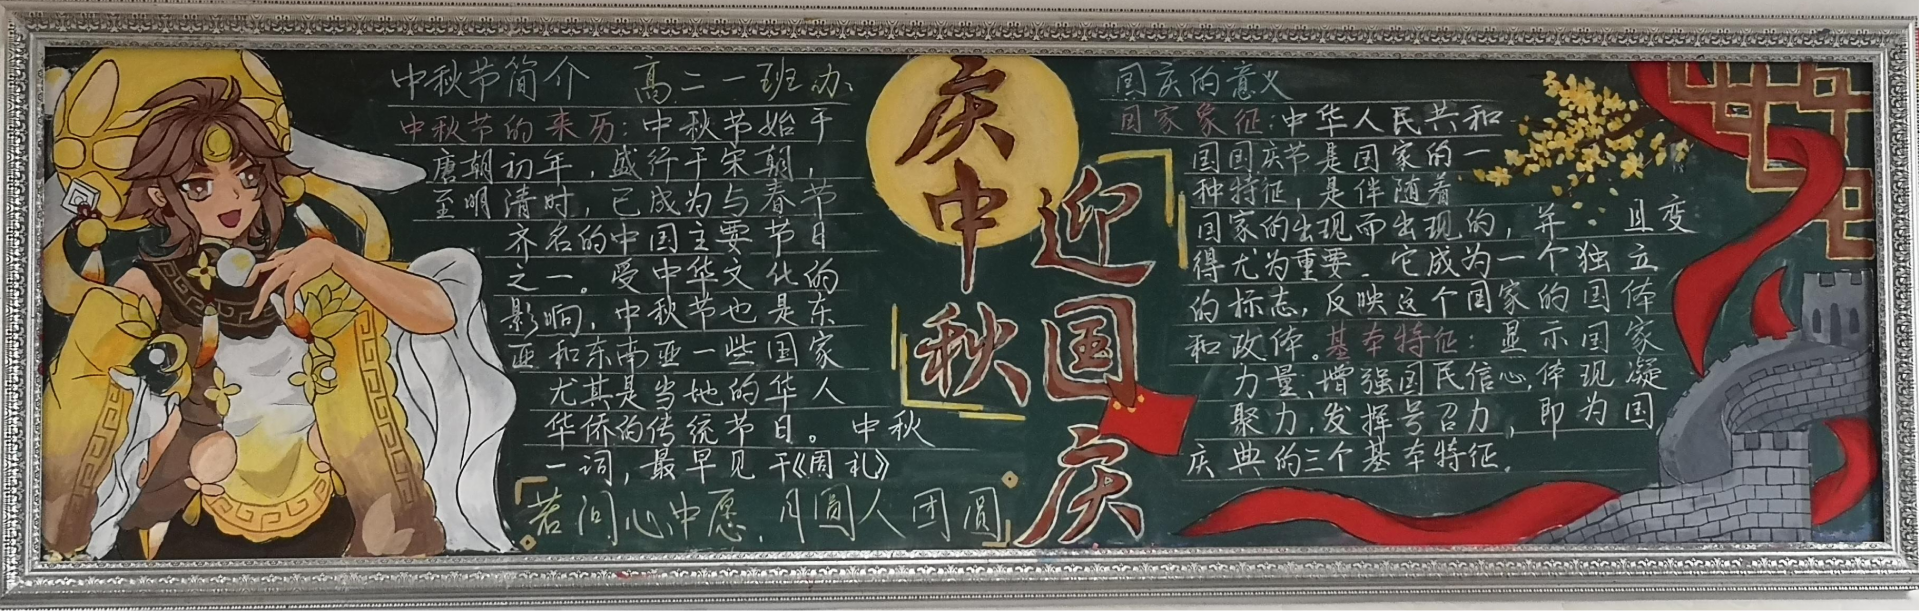 中秋节简介 高二一班办
中秋节的来历：中秋节始于
唐朝初年，盛行于宋朝，
至明清时，已成为与春节
齐名的中国主要节日
之一。受中华文化的
影响，中秋节也是东
亚和东南亚一些国家
尤其是当地的华人
华侨的传统节日。中秋
一词，最早见于《周礼》
若问心中愿，月圆人团圆
庆中秋
迎国庆
国庆的意义
国家象征：中华人民共和
国国庆节是国家的一
种特征，是伴随着
国家的出现而出现的，并且变
得尤为重要。它成为一个独立
的标志，反映这个国家的国体
和政体。基本特征：显示国家
力量，增强国民信心，体现凝
聚力，发挥号召力，即为国
庆典的三个基本特征。